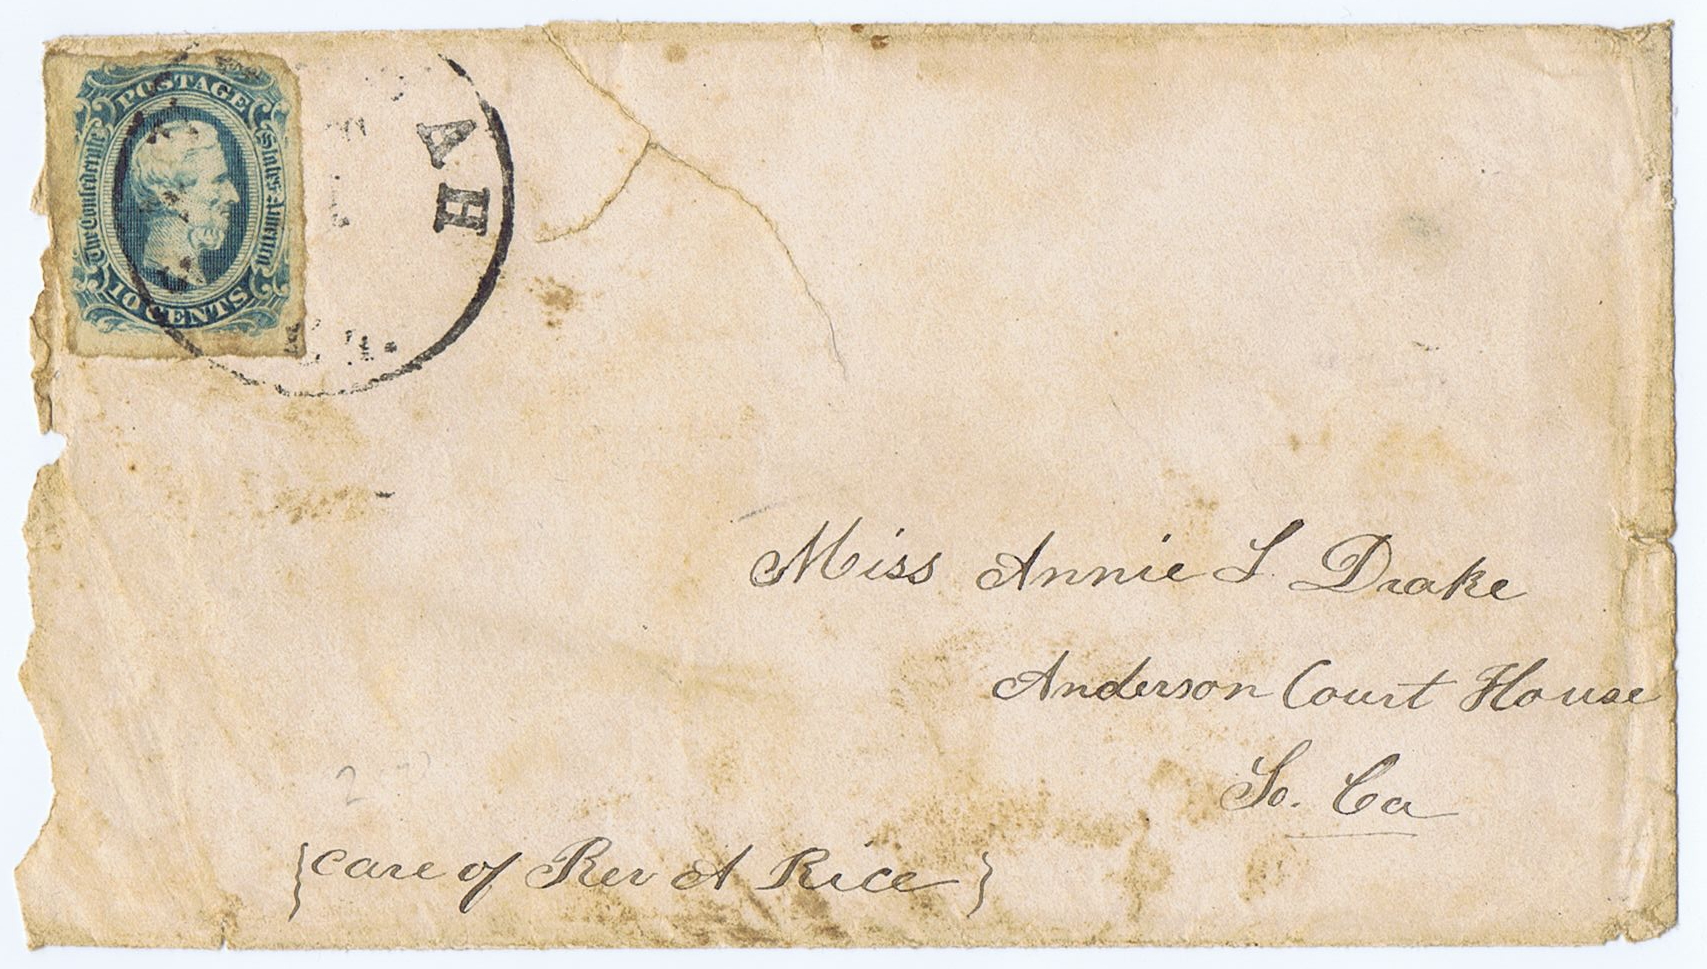 POSTAGE
The Confederate States America
10 CENTS
AH
Miss Annie L Drake
Anderson Court House
So. Ca
{care of Rev A Rice}